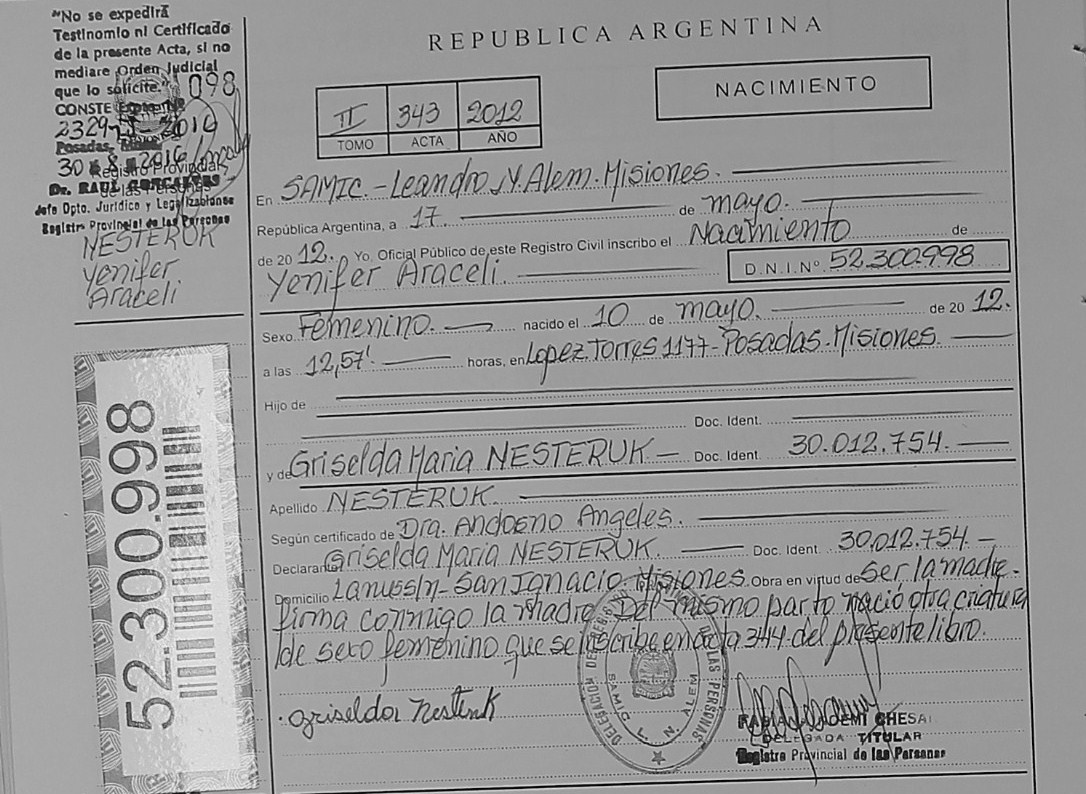 "No se expedirá
Testinomio ni Certificado
de la presente Acta, si no
mediare Orden Judicial
que lo solicite." 098
CONSTE
2329 2016
Posadas,
30 8 2016
Registro Provincial
de las Personas
Dr. RAUL
Jefe Dpto. Jurídico y Legalizaciones
Registro Provincial de las Personas
NESTERUK
Yenifer
Araceli
52.300.998
REPUBLICA ARGENTINA
NACIMIENTO
II 343 2012
TOMO ACTA AÑO
En SAMIC.-Leandro N. Alem-Misiones.
República Argentina, a 17. de mayo.
de 2012. Yo, Oficial Público de este Registro Civil inscribo el Nacimiento de
Yenifer Araceli. D.N.I.Nº 52.300.998
Sexo Femenino. nacido el 10 de mayo. de 2012.
a las 12,57'. horas, en Lopez Torres 1177-Posadas-Misiones.
Hijo de
Doc. Ident.
y de Griselda Maria NESTERUK — Doc. Ident. 30.012.754.
Apellido NESTERUK.
Según certificado de Dra. Angeles.
Declarante Griselda Maria NESTERUK. Doc. Ident. 30.012.754.—
Domicilio Lanus s/n-San Ignacio-Misiones. Obra en virtud de ser la madre-
firma conmigo la madre. Del mismo parto nacio otra criatura
de sexo femenino que se inscribe en acta 344 del presente libro.
griselda nesteruk
DELEGACION DEL REGISTRO PROVINCIAL DE LAS PERSONAS
SAMIC L. N. ALEM
CHESA
DELEGADA TITULAR
Registro Provincial de las Personas